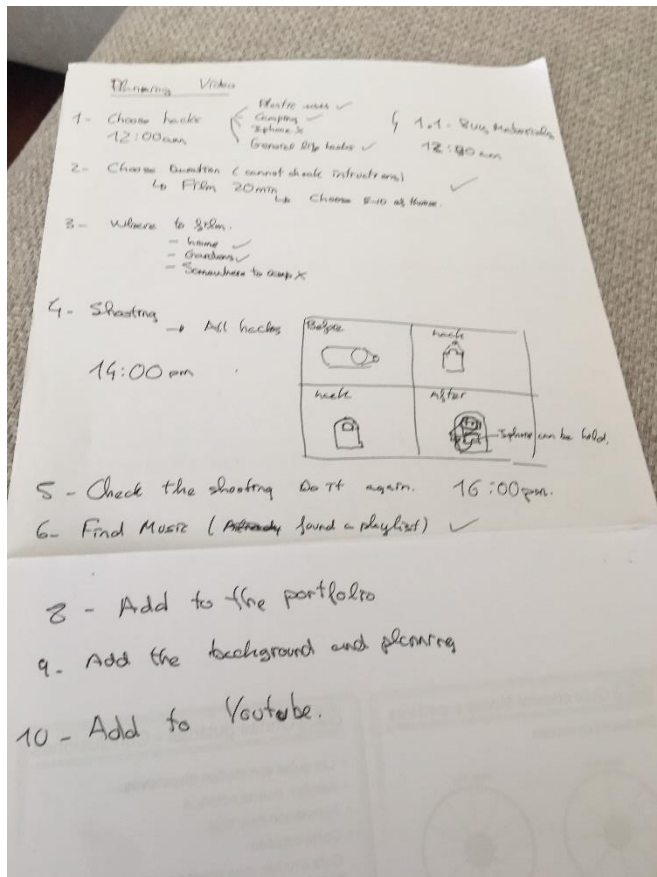 Planning Video
1- Choose hacks
12:00am
Plastic uses ✓
Camping ✓
Iphone X
General life hacks ✓
1.1- Buy Materials
12:30am
2- Choose Duration (cannot check intructions) ✓
↳ Film 20min
↳ Choose 5-10 of them.
3- Where to film.
- home ✓
- Gardens ✓
- Somewhere to camp X
4- Shooting → All hacks
14:00 pm
Before
hack
hack
After
Iphone can be hold.
5- Check the shooting Do it again. 16:00pm.
6- Find Music (Already found a playlist) ✓
8- Add to the portfolio
9- Add the background and planning
10- Add to Youtube.